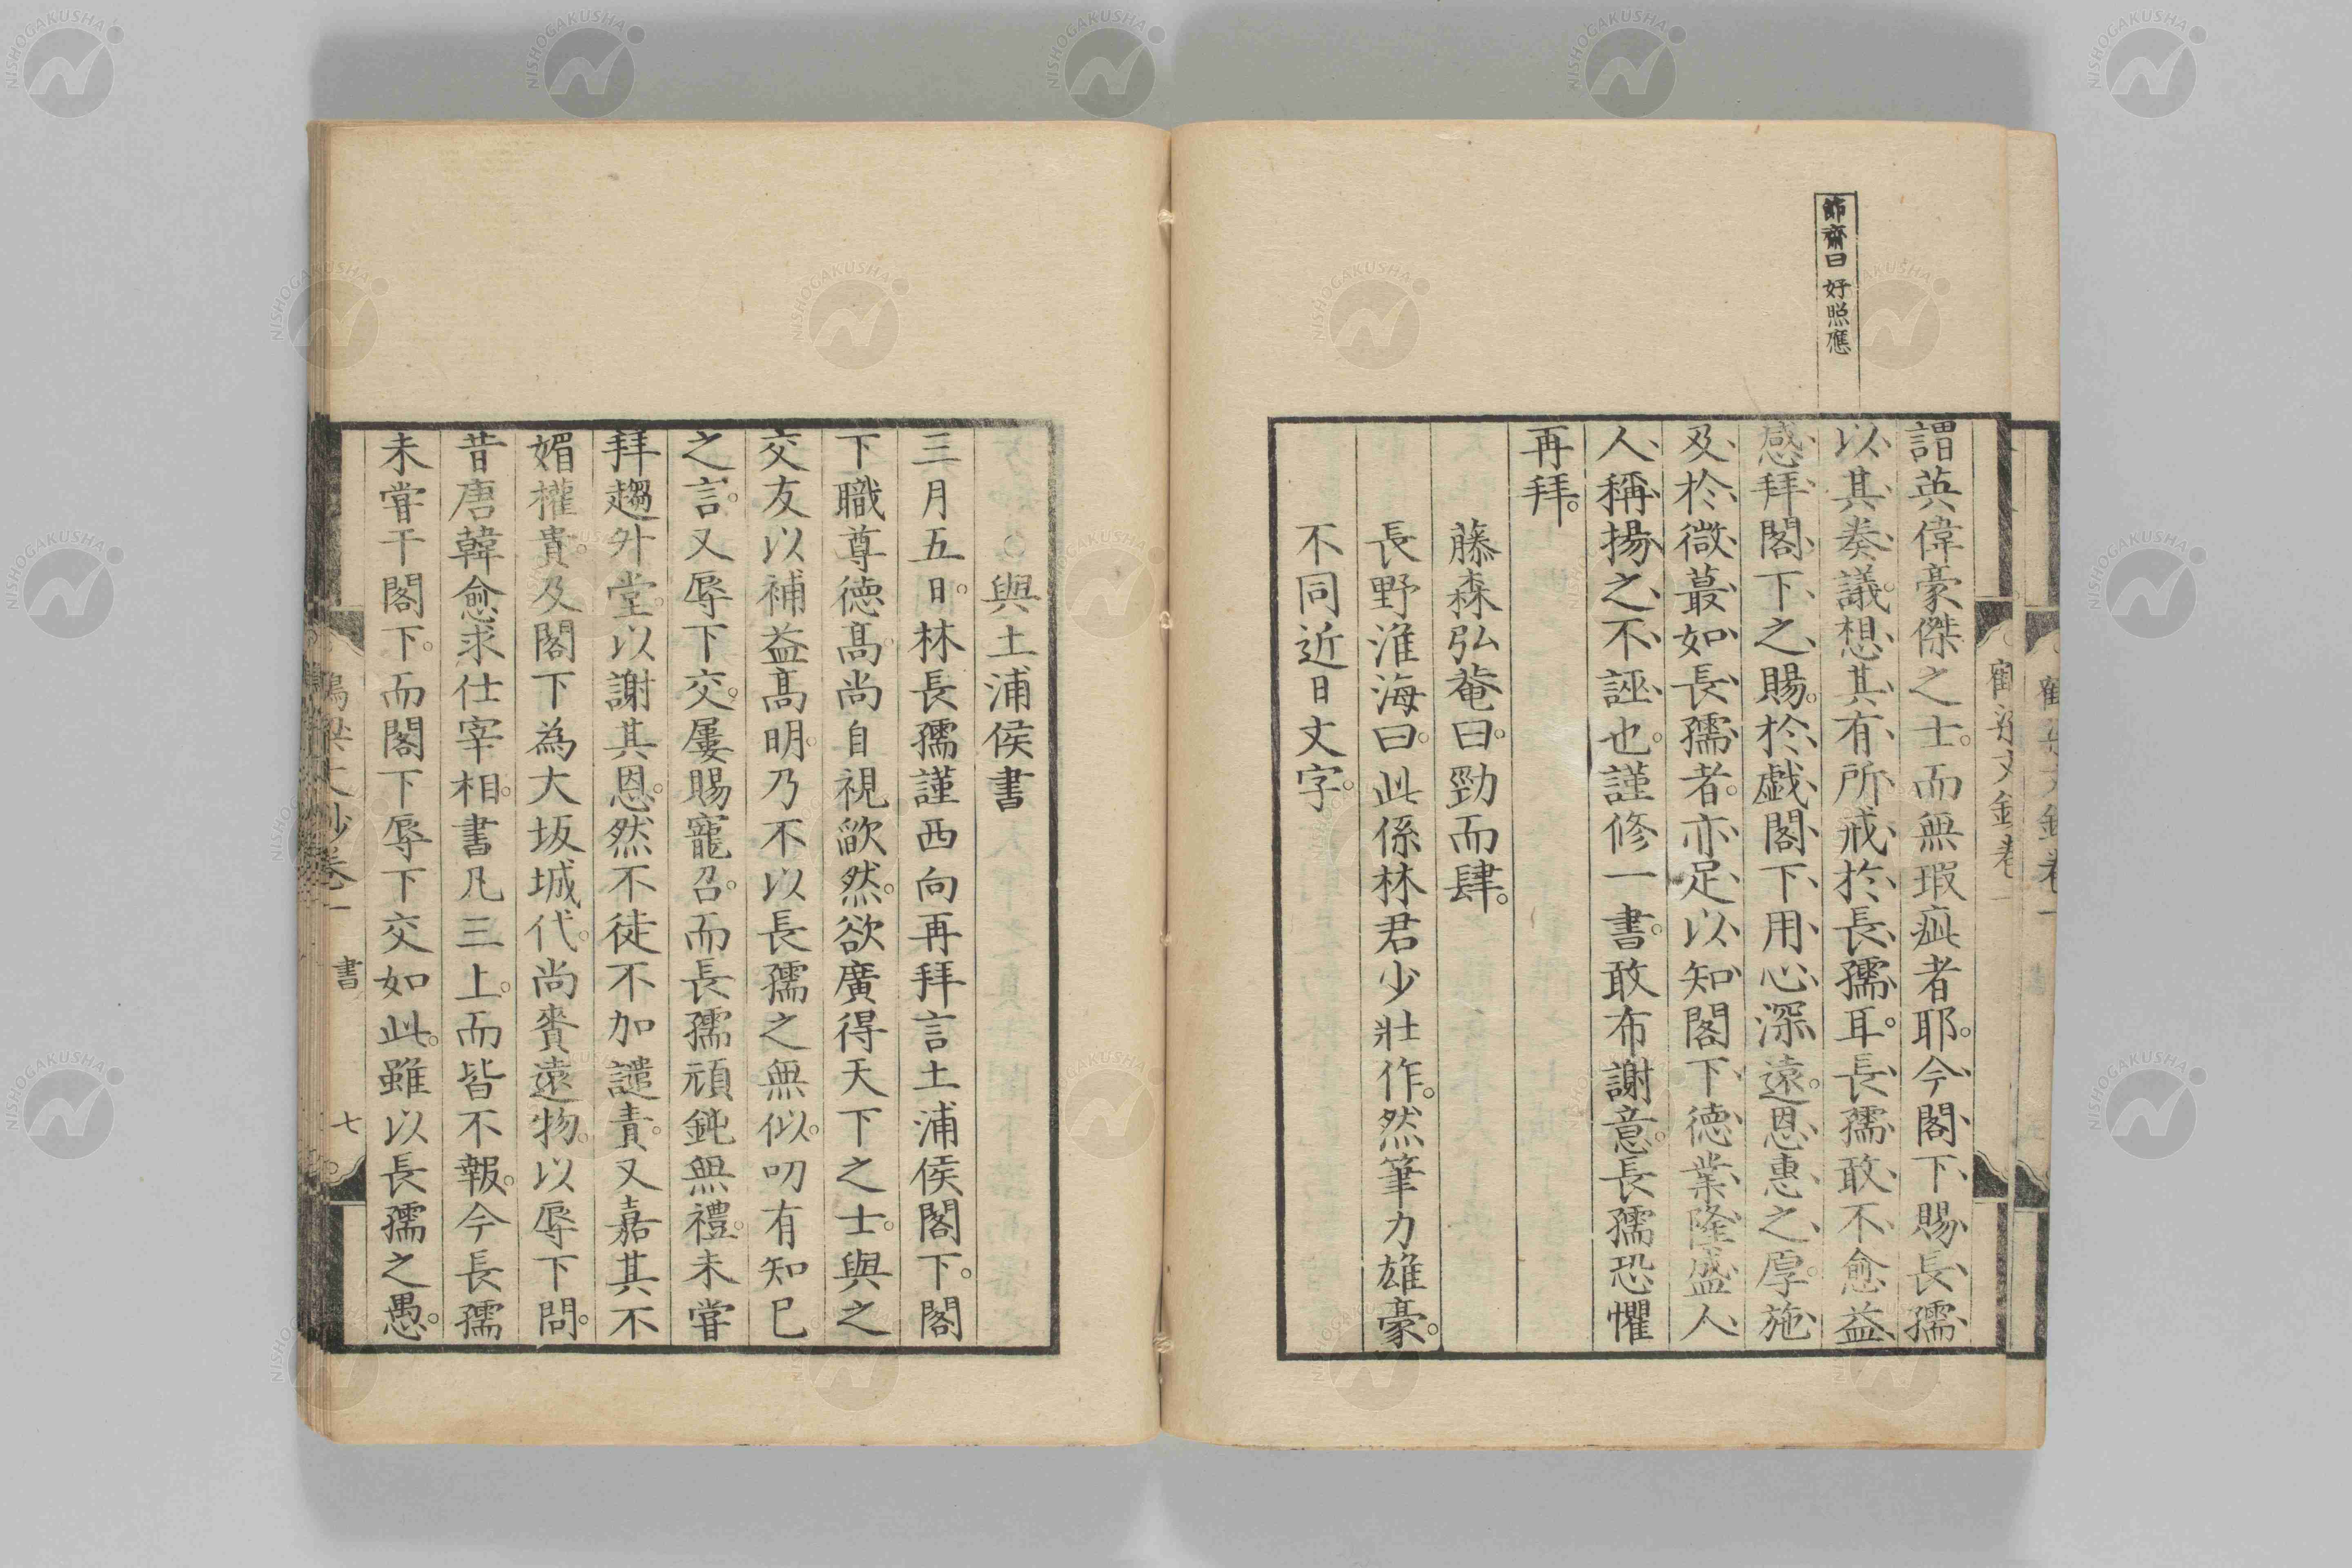 節齋曰 好照應
謂英偉豪傑之士。而無瑕疵者耶。今閣下賜長孺
以其奏議。想其有所戒於長孺耳。長孺敢不愈益
感拜閣下之賜。於戱閣下用心深遠。恩惠之厚。施
及於微蕞如長孺者。亦足以知閣下德業隆盛人
人稱揚之不誣也。謹修一書。敢布謝意。長孺恐懼
再拜。
藤森弘菴曰。勁而肆。
長野淮海曰。此係林君少壯作。然筆力雄豪。
不同近日文字。
與土浦侯書
三月五日。林長孺謹西向再拜言土浦侯閣下。閣
下職尊德高。尚自視歉然。欲廣得天下之士。與之
交友以補益高明。乃不以長孺之無似。叨有知己
之言。又辱下交。屢賜寵召。而長孺頑鈍無禮。未甞
拜趨外堂。以謝其恩。然不徒不加譴責。又嘉其不
媚權貴。及閣下為大坂城代。尚賚遠物。以辱下問。
昔唐韓愈求仕宰相。書凡三上。而皆不報。今長孺
未甞干閣下。而閣下辱下交如此。雖以長孺之愚。
鶴梁文鈔卷一 書 七
NISHOGAKUSHA